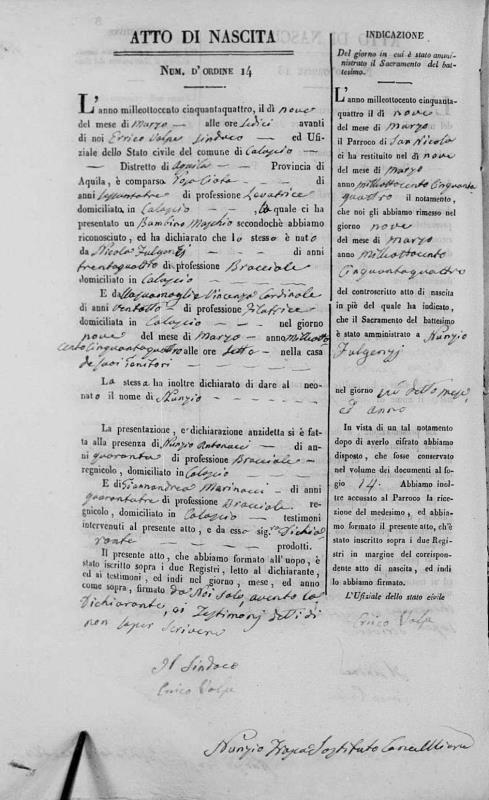 ATTO DI NASCITA
NUM. D'ORDINE 14
L'anno milleottocento cinquantaquattro, il dì nove
del mese di Marzo alle ore sedici avanti
di noi Errico Volpe Sindaco ed Ufi-
ziale dello Stato civile del comune di Calascio
Distretto di Aquila Provincia di
Aquila, è comparsa di
anni sessantatre di professione Levatrice
domiciliata in Calascio la quale ci ha
presentato un Bambino Maschio secondochè abbiamo
riconosciuto, ed ha dichiarato che lo stesso è nato
da Nicola Fulgenzj di anni
trentaquattro di professione Bracciale
domiciliato in Calascio
E da sua moglie Vincenza Cardinale
di anni ventotto di professione Filatrice
domiciliata in Calascio nel giorno
nove del mese di Marzo anno milleotto
cento Cinquantaquattro alle ore sette nella casa
de suoi Genitori
La stessa ha inoltre dichiarato di dare al neo-
nato il nome di Nunzio
La presentazione, e dichiarazione anzidetta si è fat-
ta alla presenza di Nunzio Antonacci di an-
ni quaranta di professione Bracciale
regnicolo, domiciliato in Calascio
E di Giannandrea Marinacci di anni
quarantatre di professione Bracciale re-
gnicolo, domiciliato in Calascio testimoni
intervenuti al presente atto, e da essa sig.ra Dichia
rante prodotti.
Il presente atto, che abbiamo formato all'uopo, è
stato iscritto sopra i due Registri, letto al dichiarante,
ed ai testimoni, ed indi nel giorno, mese, ed anno
come sopra, firmato da Noi solo, avento la
Dichiarante, ei Testimonj detti di
non saper scrivere
Il Sindaco
Errico Volpe
INDICAZIONE
Del giorno in cui è stato ammi-
nistrato il Sacramento del bat-
tesimo.
L'anno milleottocento cinquanta-
quattro il dì nove
del mese di marzo
il Parroco di San Nicola
ci ha restituito nel dì nove
del mese di marzo
anno milleottocento Cinquanta
quattro il notamento,
che noi gli abbiamo rimesso nel
giorno nove
del mese di marzo
anno milleottocento
Cinquantaquattro
del controscritto atto di nascita
in piè del quale ha indicato,
che il Sacramento del battesimo
è stato amministrato a Nunzio
Fulgenzj
nel giorno dì detto mese,
ed anno
In vista di un tal notamento
dopo di averlo cifrato abbiamo
disposto, che fosse conservato
nel volume dei documenti al fo-
gio 14. Abbiamo inol-
tre accusato al Parroco la rice-
zione del medesimo, ed abbia-
mo formato il presente atto, ch'è
stato inscritto sopra i due Regi-
stri in margine del corrispon-
dente atto di nascita, ed indi
lo abbiamo firmato.
L'Ufiziale dello stato civile
Errico Volpe
Nunzio Sostituto Cancelliere